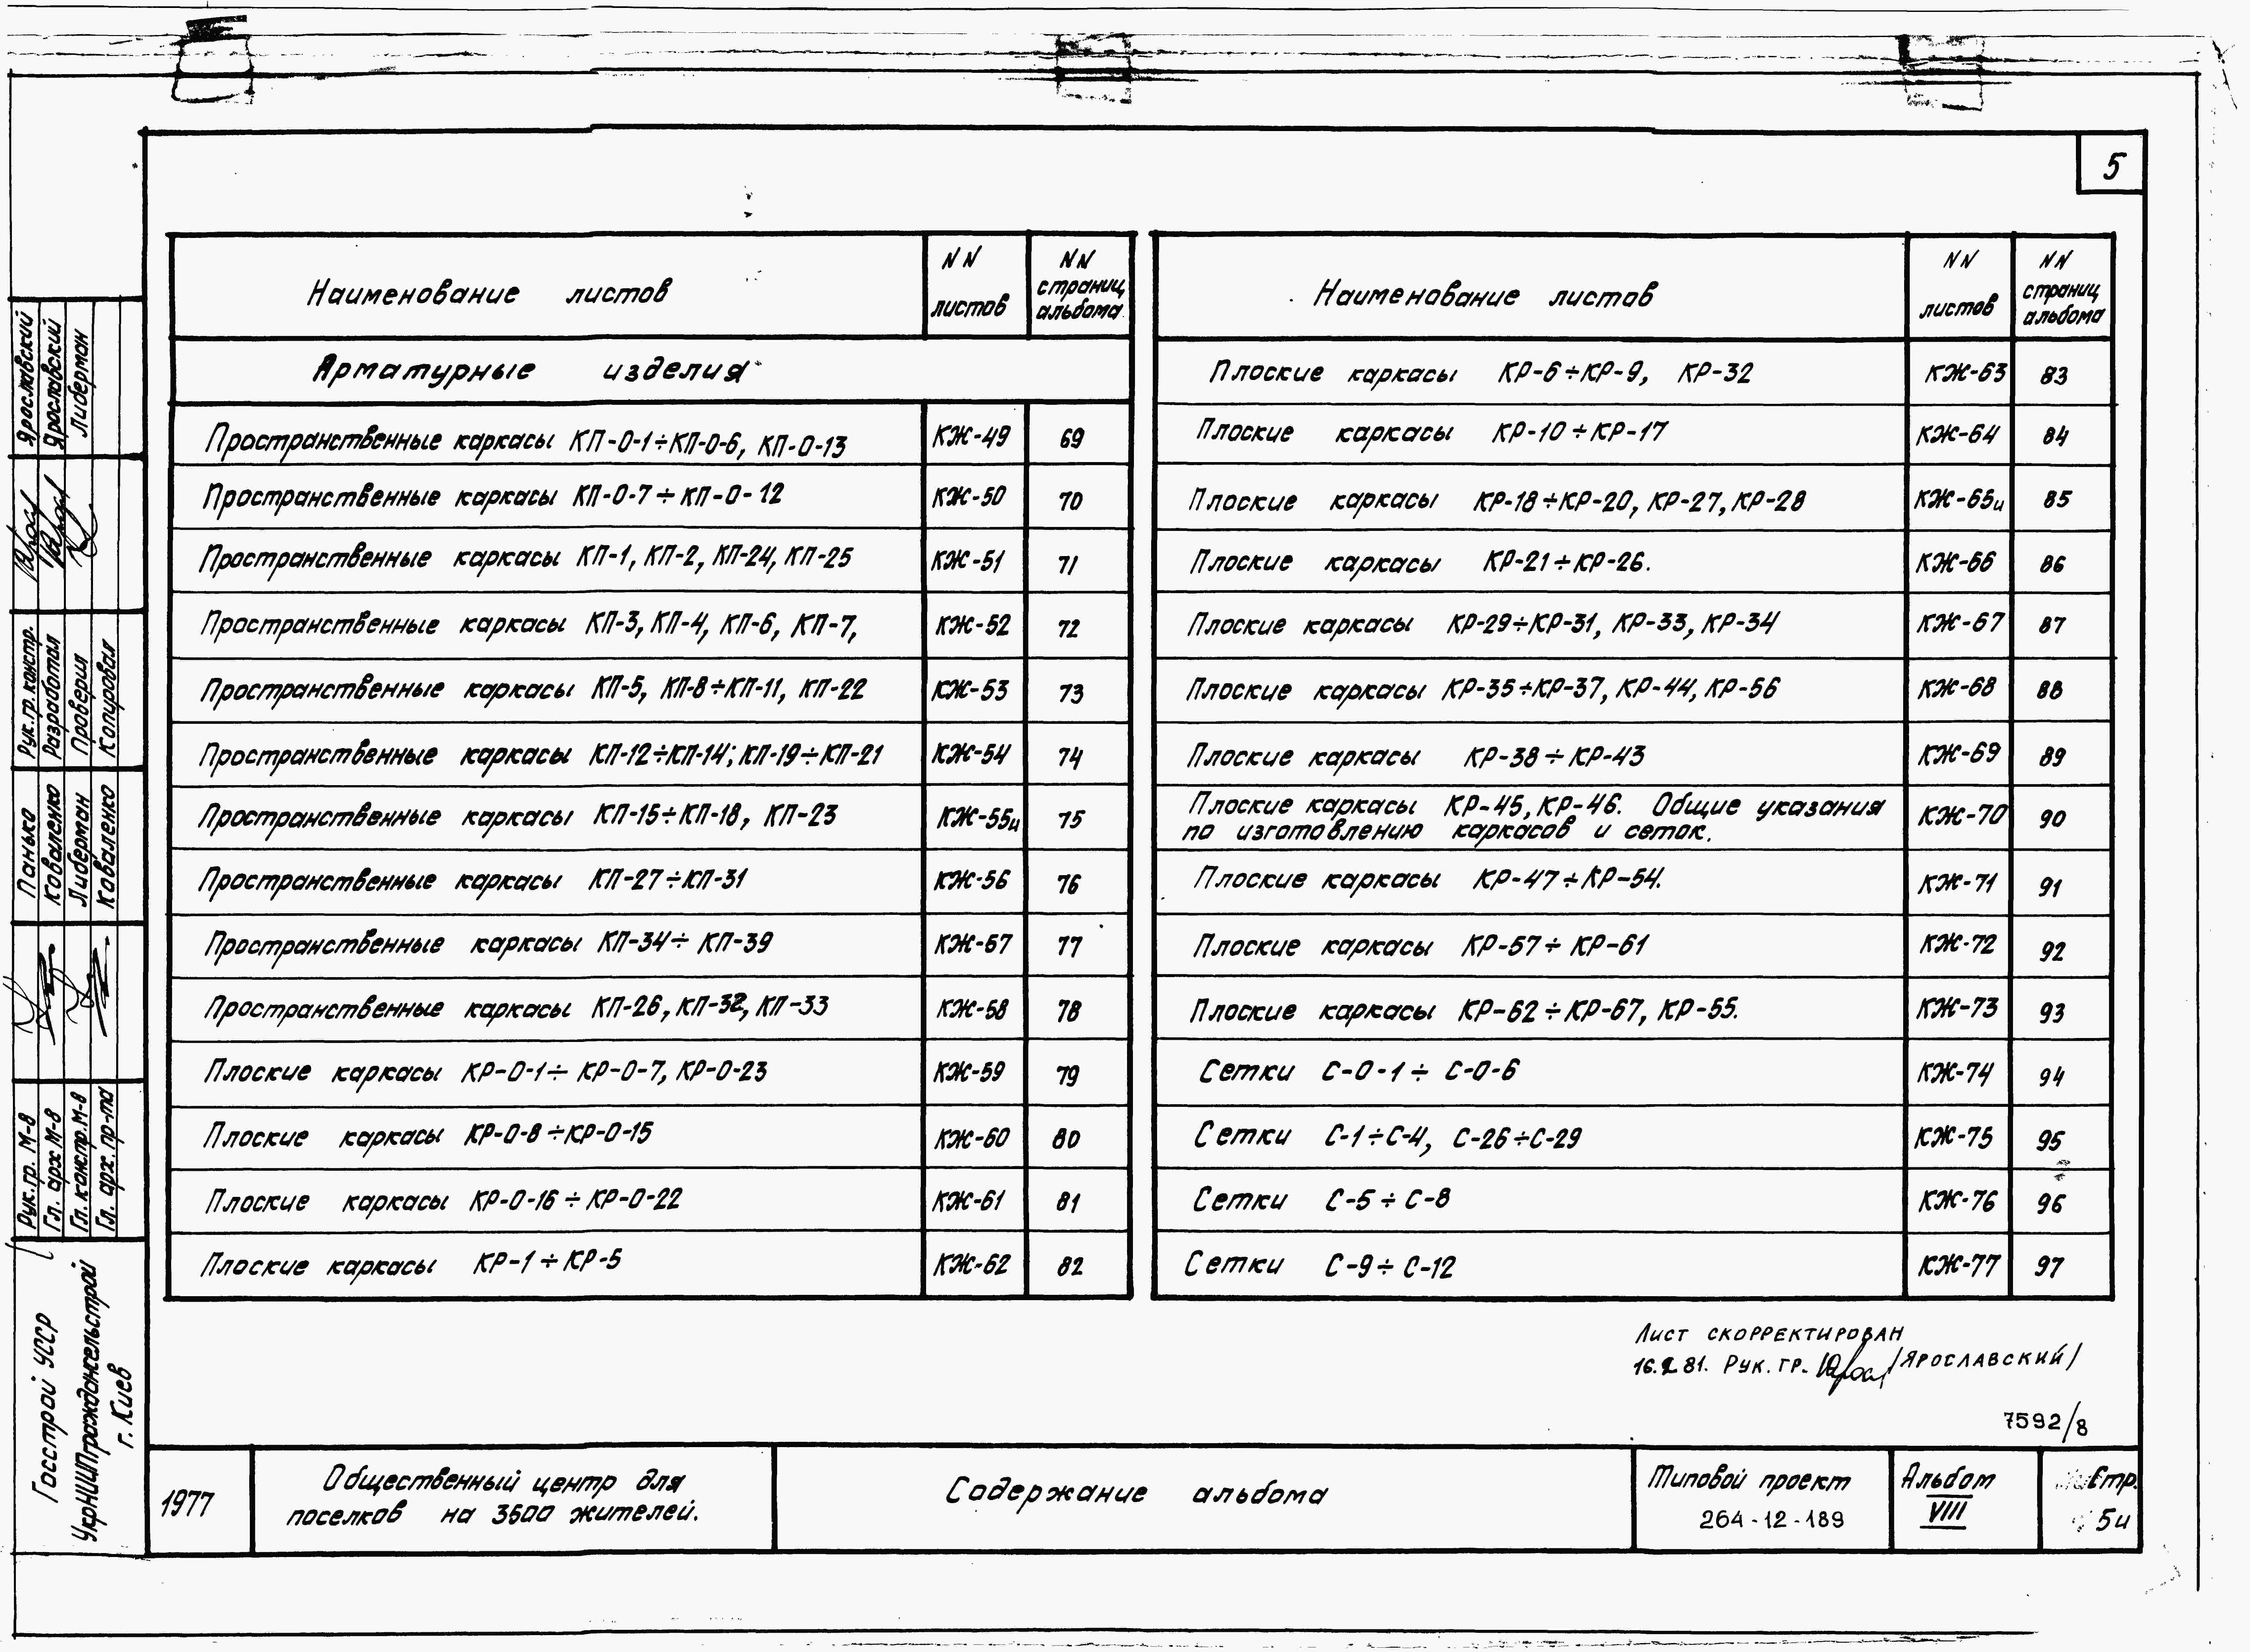 5
Наименование листов
NN листов
NN страниц альбома
Арматурные изделия
Пространственные каркасы КП-0-1÷КП-0-6, КП-0-13 КЖ-49 69
Пространственные каркасы КП-0-7÷КП-0-12 КЖ-50 70
Пространственные каркасы КП-1, КП-2, КП-24, КП-25 КЖ-51 71
Пространственные каркасы КП-3, КП-4, КП-6, КП-7, КЖ-52 72
Пространственные каркасы КП-5, КП-8÷КП-11, КП-22 КЖ-53 73
Пространственные каркасы КП-12÷КП-14; КП-19÷КП-21 КЖ-54 74
Пространственные каркасы КП-15÷КП-18, КП-23 КЖ-55и 75
Пространственные каркасы КП-27÷КП-31 КЖ-56 76
Пространственные каркасы КП-34÷КП-39 КЖ-57 77
Пространственные каркасы КП-26, КП-32, КП-33 КЖ-58 78
Плоские каркасы КР-0-1÷КР-0-7, КР-0-23 КЖ-59 79
Плоские каркасы КР-0-8÷КР-0-15 КЖ-60 80
Плоские каркасы КР-0-16÷КР-0-22 КЖ-61 81
Плоские каркасы КР-1÷КР-5 КЖ-62 82
Наименование листов
NN листов
NN страниц альбома
Плоские каркасы КР-6÷КР-9, КР-32 КЖ-63 83
Плоские каркасы КР-10÷КР-17 КЖ-64 84
Плоские каркасы КР-18÷КР-20, КР-27, КР-28 КЖ-65и 85
Плоские каркасы КР-21÷КР-26. КЖ-66 86
Плоские каркасы КР-29÷КР-31, КР-33, КР-34 КЖ-67 87
Плоские каркасы КР-35÷КР-37, КР-44, КР-56 КЖ-68 88
Плоские каркасы КР-38÷КР-43 КЖ-69 89
Плоские каркасы КР-45, КР-46. Общие указания
по изготовлению каркасов и сеток. КЖ-70 90
Плоские каркасы КР-47÷КР-54. КЖ-71 91
Плоские каркасы КР-57÷КР-61 КЖ-72 92
Плоские каркасы КР-62÷КР-67, КР-55. КЖ-73 93
Сетки С-0-1÷С-0-6 КЖ-74 94
Сетки С-1÷С-4, С-26÷С-29 КЖ-75 95
Сетки С-5÷С-8 КЖ-76 96
Сетки С-9÷С-12 КЖ-77 97
Лист скорректирован
81. Рук. гр. /Ярославский/
7592/8
1977
Общественный центр для
поселков на 3600 жителей.
Содержание альбома
Типовой проект
264-12-189
Альбом
VIII
Стр.
5и
Госстрой УССР
УкрНИИПграждансельстрой
г. Киев
Рук. гр. М-8 Панько Рук. гр. констр. Ярославский
Гл. арх М-8 Коваленко Разработал Ярославский
Гл. констр. М-8 Либерман Проверил Либерман
Гл. арх. пр-та Коваленко Копировал